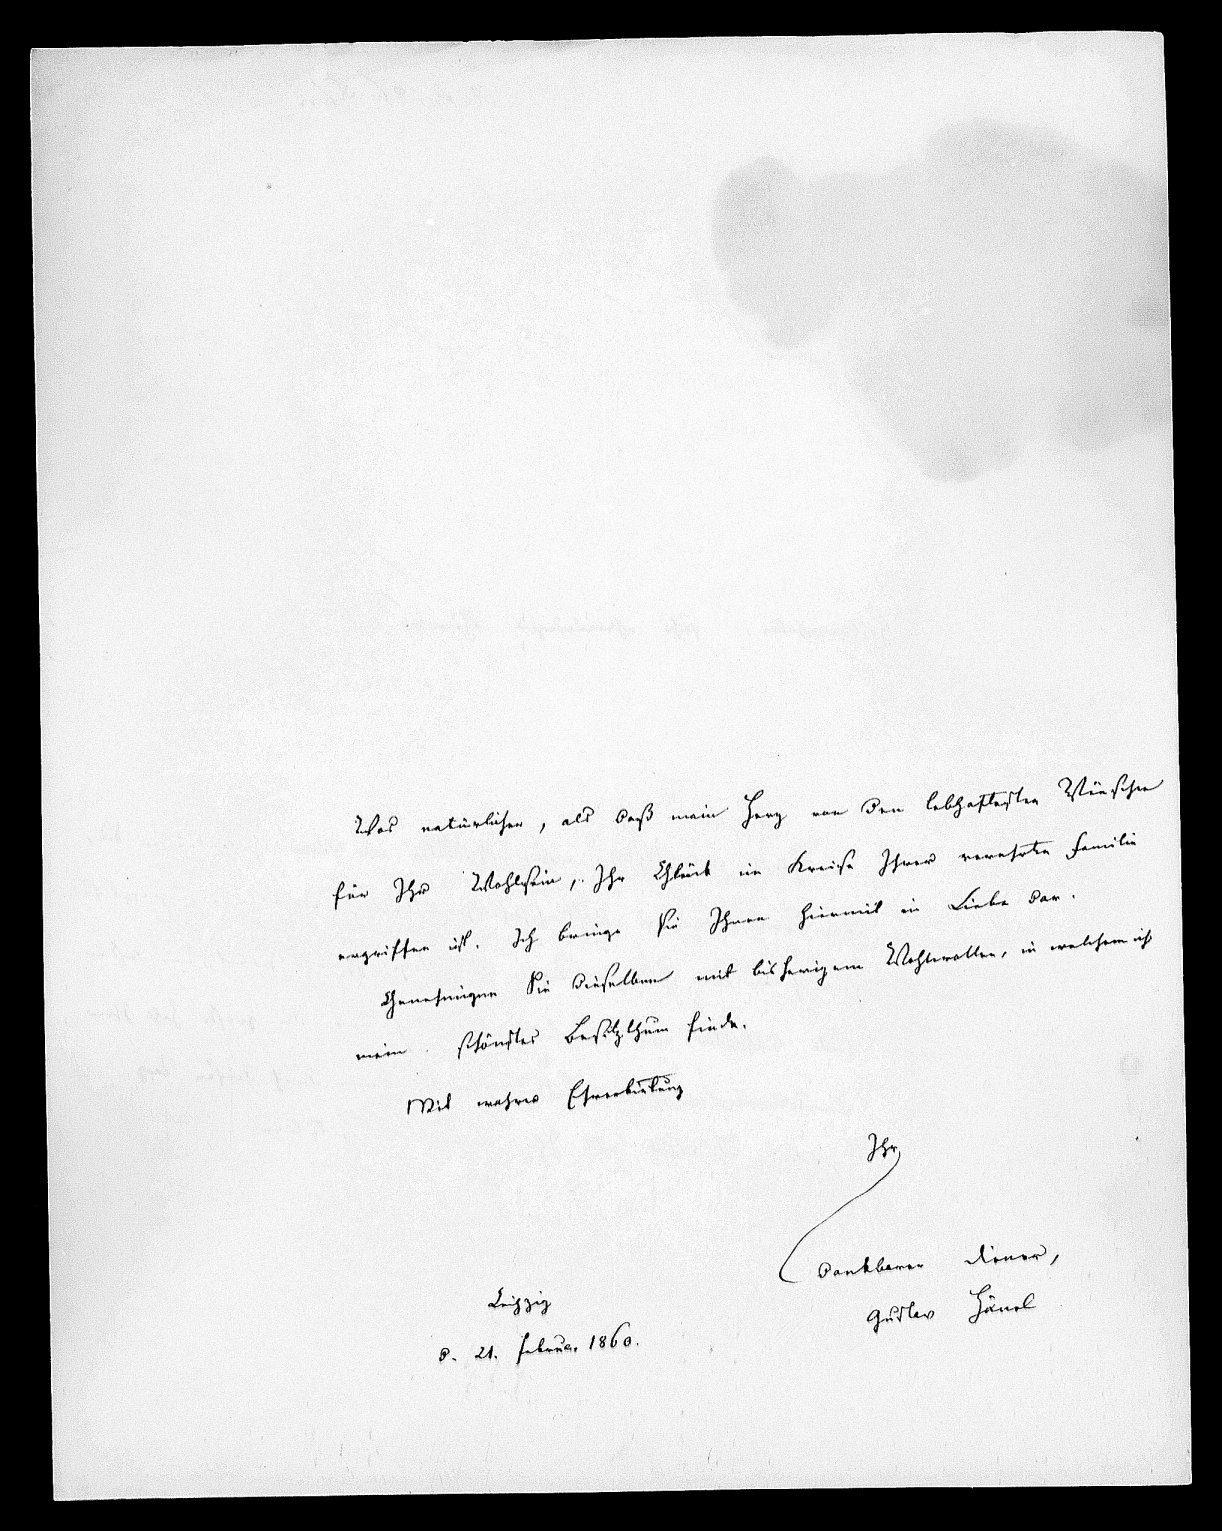 Was natürlicher, als daß mein Herz von den lebhaftesten Wünschen
für Ihr Wohlsein, Ihr Glück im Kreise Ihrer verehrten Familie
ergriffen ist. Ich bringe sie Ihnen hiermit in Liebe dar.
Genehmigen Sie dieselben mit bisherigem Wohlwollen, in welchem ich
mein schönstes Besitzthum finde.
Mit wahrer Ehrerbietung
Ihr
dankbarer Diener,
Gustav Hänel
Leipzig
d. 21. Februar 1860.